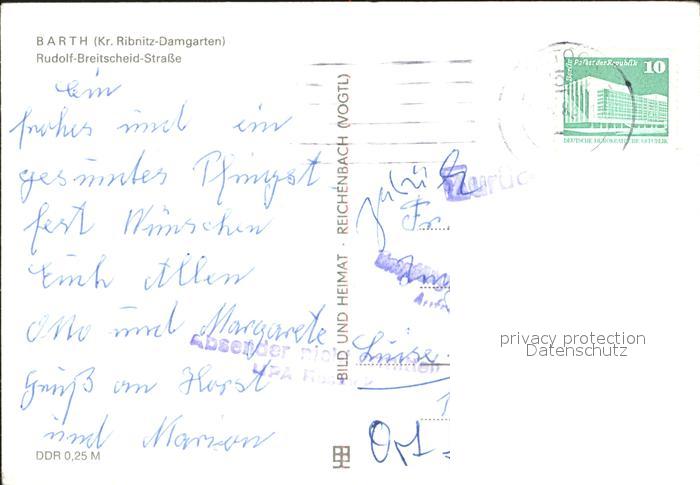 BARTH (Kr. Ribnitz-Damgarten)
Rudolf-Breitscheid-Straße
Ein
frohes und ein
gesundes Pfingst
fest Wünschen
Euch Allen
Otto und Margarete
Gruß an Horst
und Marion
DDR 0,25 M
BILD UND HEIMAT · REICHENBACH (VOGTL)
Berlin Palast der Republik
10
DEUTSCHE DEMOKRATISCHE REPUBLIK
zurück
Zurück
Fr.
Absender nicht
HPA
Luise
Ort
privacy protection
Datenschutz